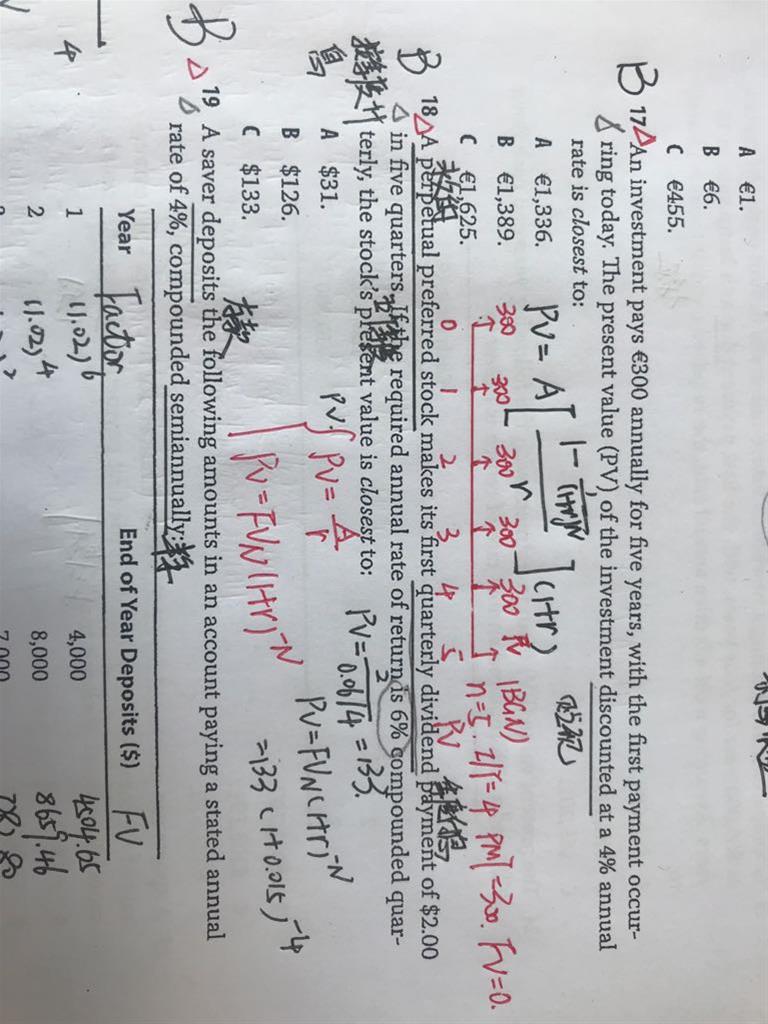 A €1.
B €6.
C €455.
B 17 An investment pays €300 annually for five years, with the first payment occur-
ring today. The present value (PV) of the investment discounted at a 4% annual
rate is closest to:
A €1,336.
B €1,389.
C €1,625.
PV = A [ 1 - 1/(1+r)^N / r ] (1+r)
300 300 300 300 300 FV
0 1 2 3 4 5
PV
(BGN)
n=5. I/Y=4 PMT=300. FV=0.
B 18 A perpetual preferred stock makes its first quarterly dividend payment of $2.00
in five quarters. If the required annual rate of return is 6% compounded quar-
terly, the stock's present value is closest to:
A $31.
B $126.
C $133.
PV { PV = A/r
PV = FVN (1+r)^-N
PV = 2/0.06/4 = 133.
PV = FVN (1+r)^-N
= 133 (1+0.015)^-4
B 19 A saver deposits the following amounts in an account paying a stated annual
rate of 4%, compounded semiannually:
Year Factor End of Year Deposits ($) FV
1 (1.02)^6 4,000 4504.65
2 (1.02)^4 8,000 8659.46
7,000
4